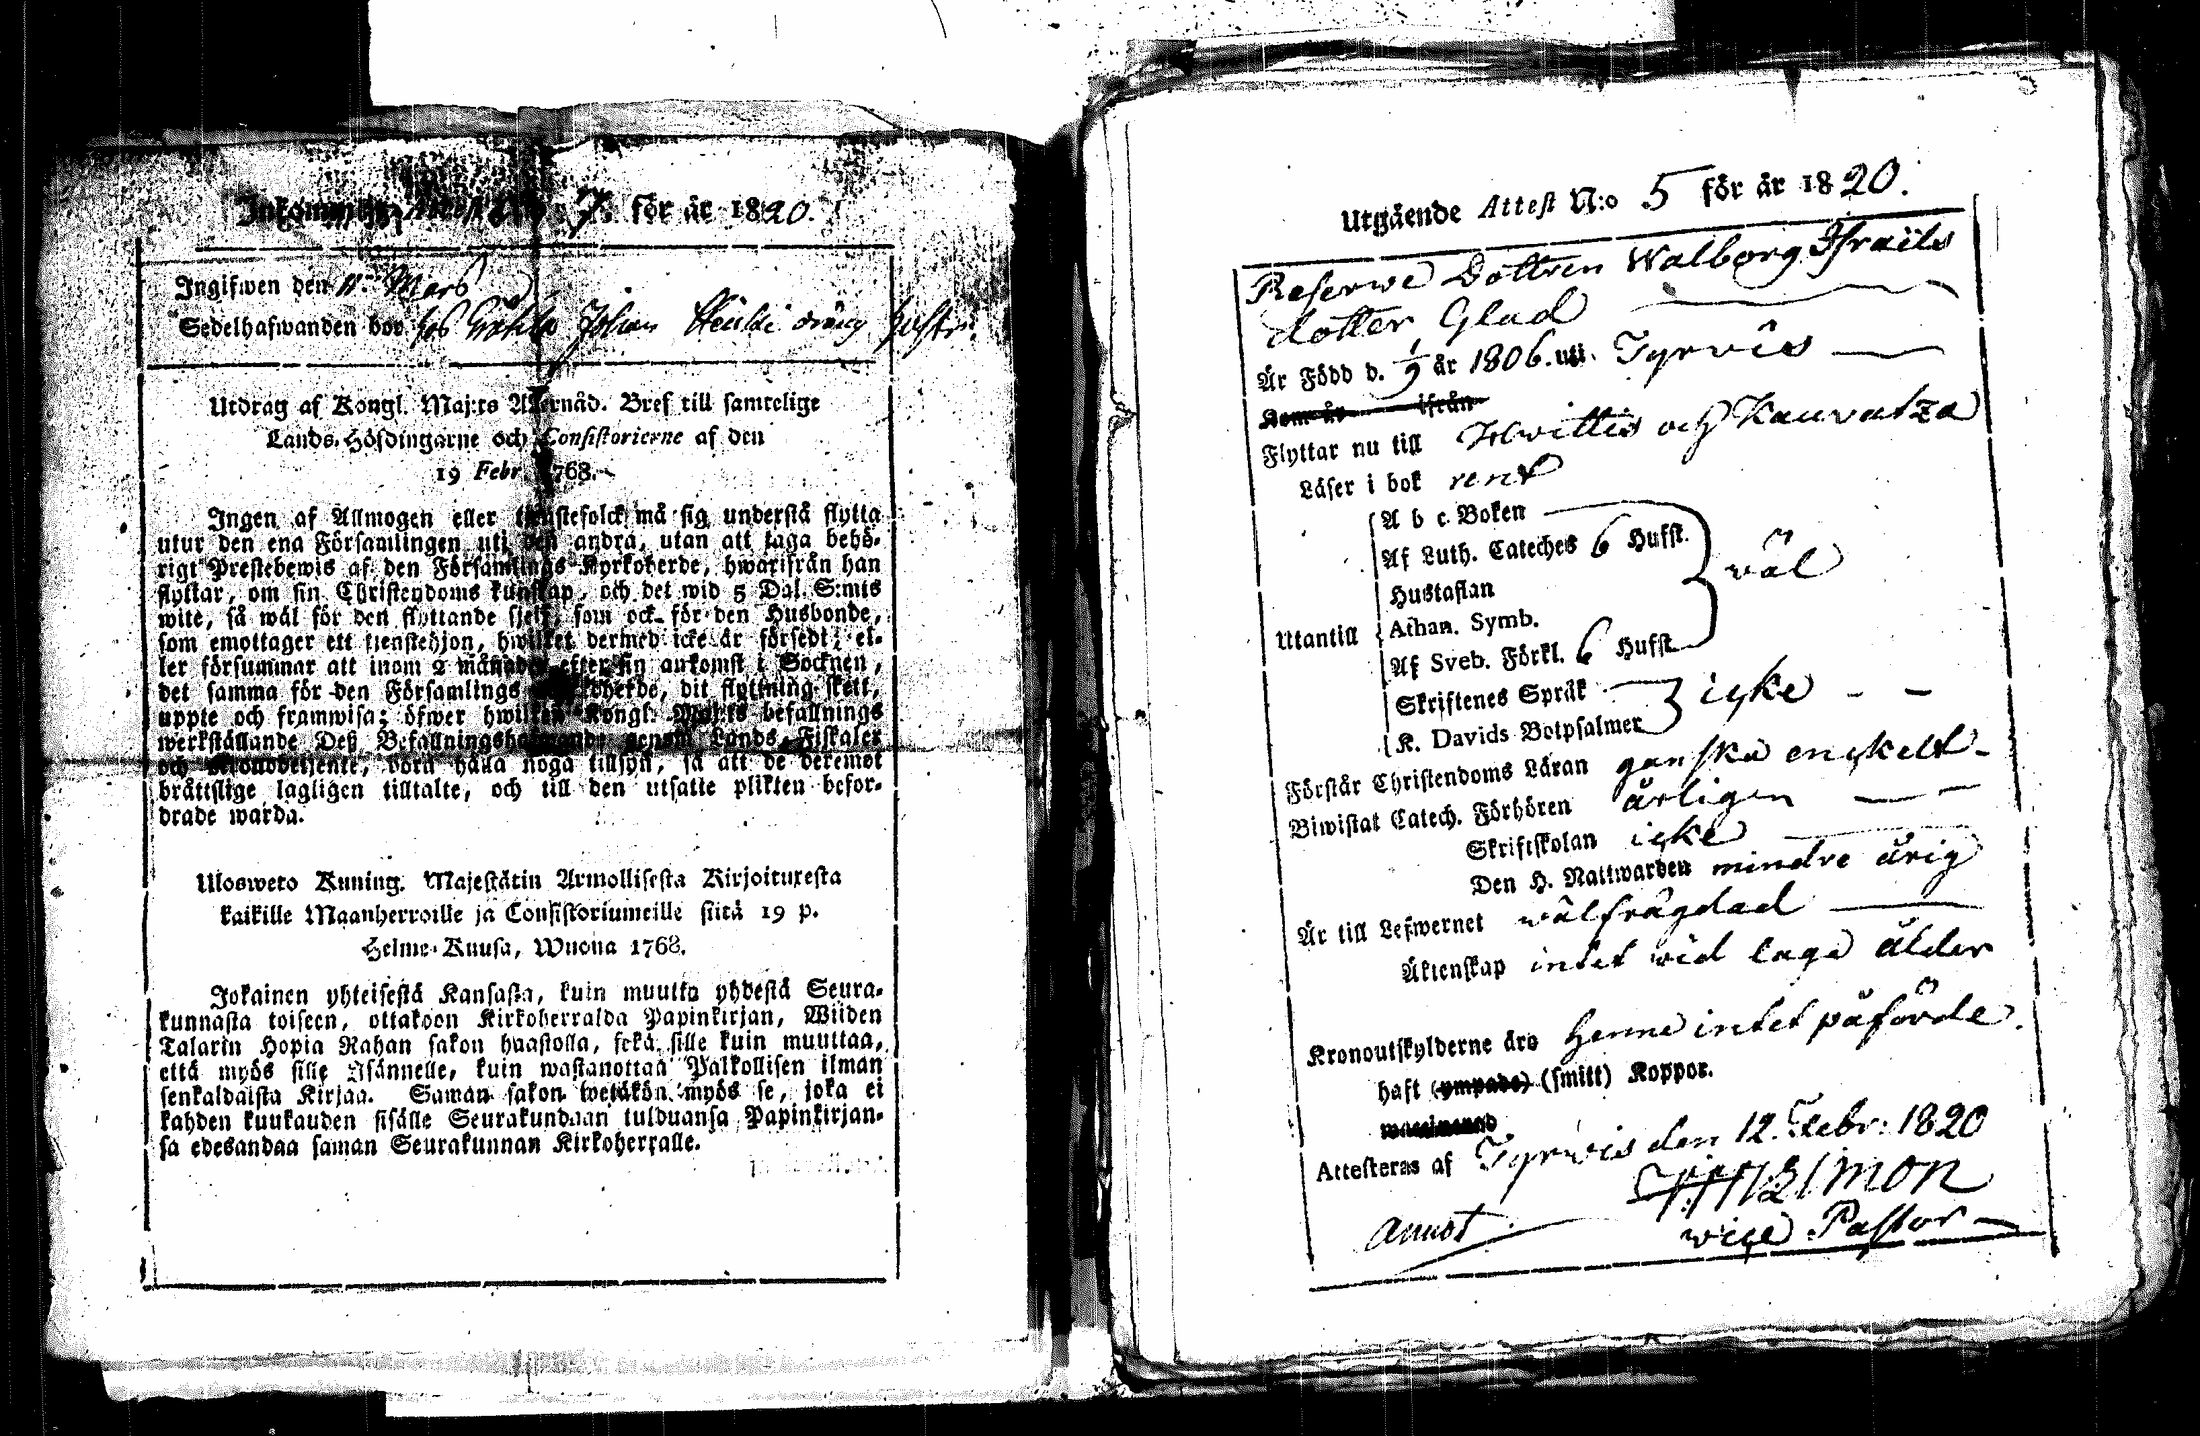 Inkommit Attest N:o 7. för år 1820.
Ingifwen den 11te Mars
Sedelhafwanden bor hos Johan dräng hustru.
Utdrag af Kongl. Maj:ts Allernåd. Bref till samtelige
Lands-Höfdingarne och Consistorierne af den
19 Febr. 1768.
Ingen af Allmogen eller tjenstefolck må sig understå flytta
utur den ena Församlingen uti den andra, utan att taga behö-
rigt Prestebewis af den Församlings Kyrkoherde, hwarifrån han
flyttar, om sin Christendoms kunskap, och det wid 5 Dal. S:mts
wite, så wäl för den flyttande sjelf, som ock för den Husbonde,
som emottager ett tjenstehjon, hwilket dermed icke är försedt; el-
ler försummar att inom 2 månader efter sin ankomst i Socknen,
det samma för den Församlings Kyrkoherde, dit flyttning skett,
uppte och framwisa; öfwer hwilken Kongl. Maj:ts befallnings
werkställande Deß Befallningshafwande genom Lands-Fiskaler
och Kronobetjente, böra hålla noga tillsyn, så att de deremot
bråttslige lagligen tilltalte, och till den utsatte plikten befor-
drade warda.
Ulosweto Kuning. Majestätin Armollisesta Kirjoituxesta
kaikille Maanherroille ja Consistoriumeille siitä 19 p.
Helme-Kuusa, Wuona 1768.
Jokainen yhteisestä Kansasta, kuin muutta yhdestä Seura-
kunnasta toiseen, ottakoon Kirkoherralda Papinkirjan, Wiiden
Talarin Hopia Rahan sakon haastolla, sekä sille kuin muuttaa,
että myös sille Isännelle, kuin wastanottaa Palkollisen ilman
senkaldaista Kirjaa. Saman sakon wetäkön myös se, joka ei
kahden kuukauden sisälle Seurakundaan tulduansa Papinkirjan-
sa edesandaa saman Seurakunnan Kirkoherralle.
Utgående Attest N:o 5 för år 1820.
Reserwe Dottren Walborg Israëls
dotter Glad
Är Född d. 1/9 år 1806. uti. Tyrvis
Kom år ifrån
Flyttar nu till Hvittis och Kauvatza
Läser i bok rent
A b c Boken
Af Luth. Cateches 6 Hufst.
Hustaflan
wäl
Utantill Athan. Symb.
Af Sveb. Förkl. 6 Hufst.
Skriftenes Språk icke - -
K. Davids Botpsalmer
Förstår Christendoms Läran ganska enskelt -
Biwistat Catech. Förhören årligen
Skriftskolan icke
Den H. Nattwarden mindre årig
Är till Lefwernet wälfrägdad
Äktenskap intet wid laga ålder
Kronoutskylderne äro henne intet påförde.
haft (ympade) (smitt) Koppor.
Attesteras af Tyrwis den 12. Febr: 1820
annot.
wice Pastor